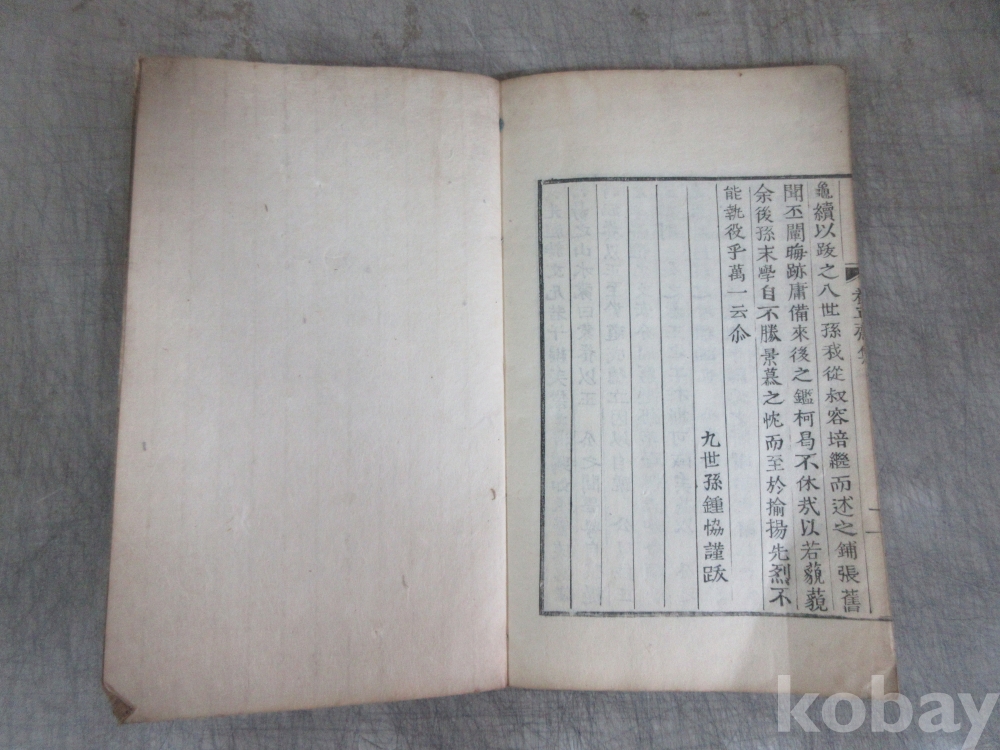 龜續以跋之八世孫我從叔容培繼而述之鋪張舊
聞丕闡晦跡庸備來後之鑑柯曷不休㦲以若藐藐
余後孫末學自不勝景慕之忱而至於揄揚先烈不
能執役乎萬一云尒
九世孫鍾恊謹跋
kobay